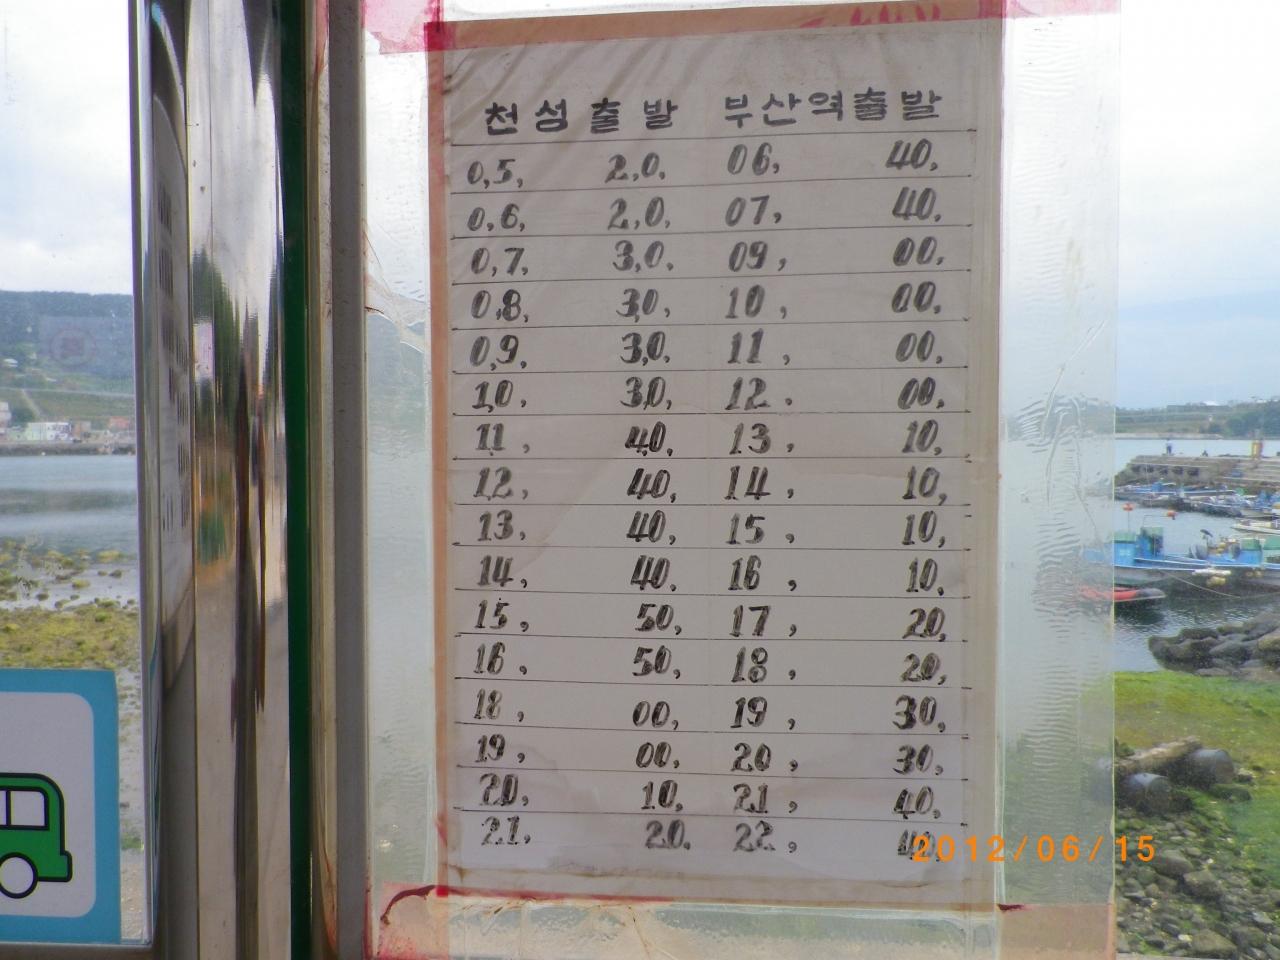 천성출발 부산역출발
0,5, 2,0, 06, 40,
0,6, 2,0, 07, 40,
0,7, 3,0, 09, 00,
0,8, 3,0, 10, 00,
0,9, 3,0, 11, 00,
1,0, 3,0, 12, 00,
11, 40, 13, 10,
12, 40, 14, 10,
13, 40, 15, 10,
14, 40, 16, 10,
15, 50, 17, 20,
16, 50, 18, 20,
18, 00, 19, 30,
19, 00, 20, 30,
20, 10, 21, 40,
21, 20, 22, 40,
2012/06/15